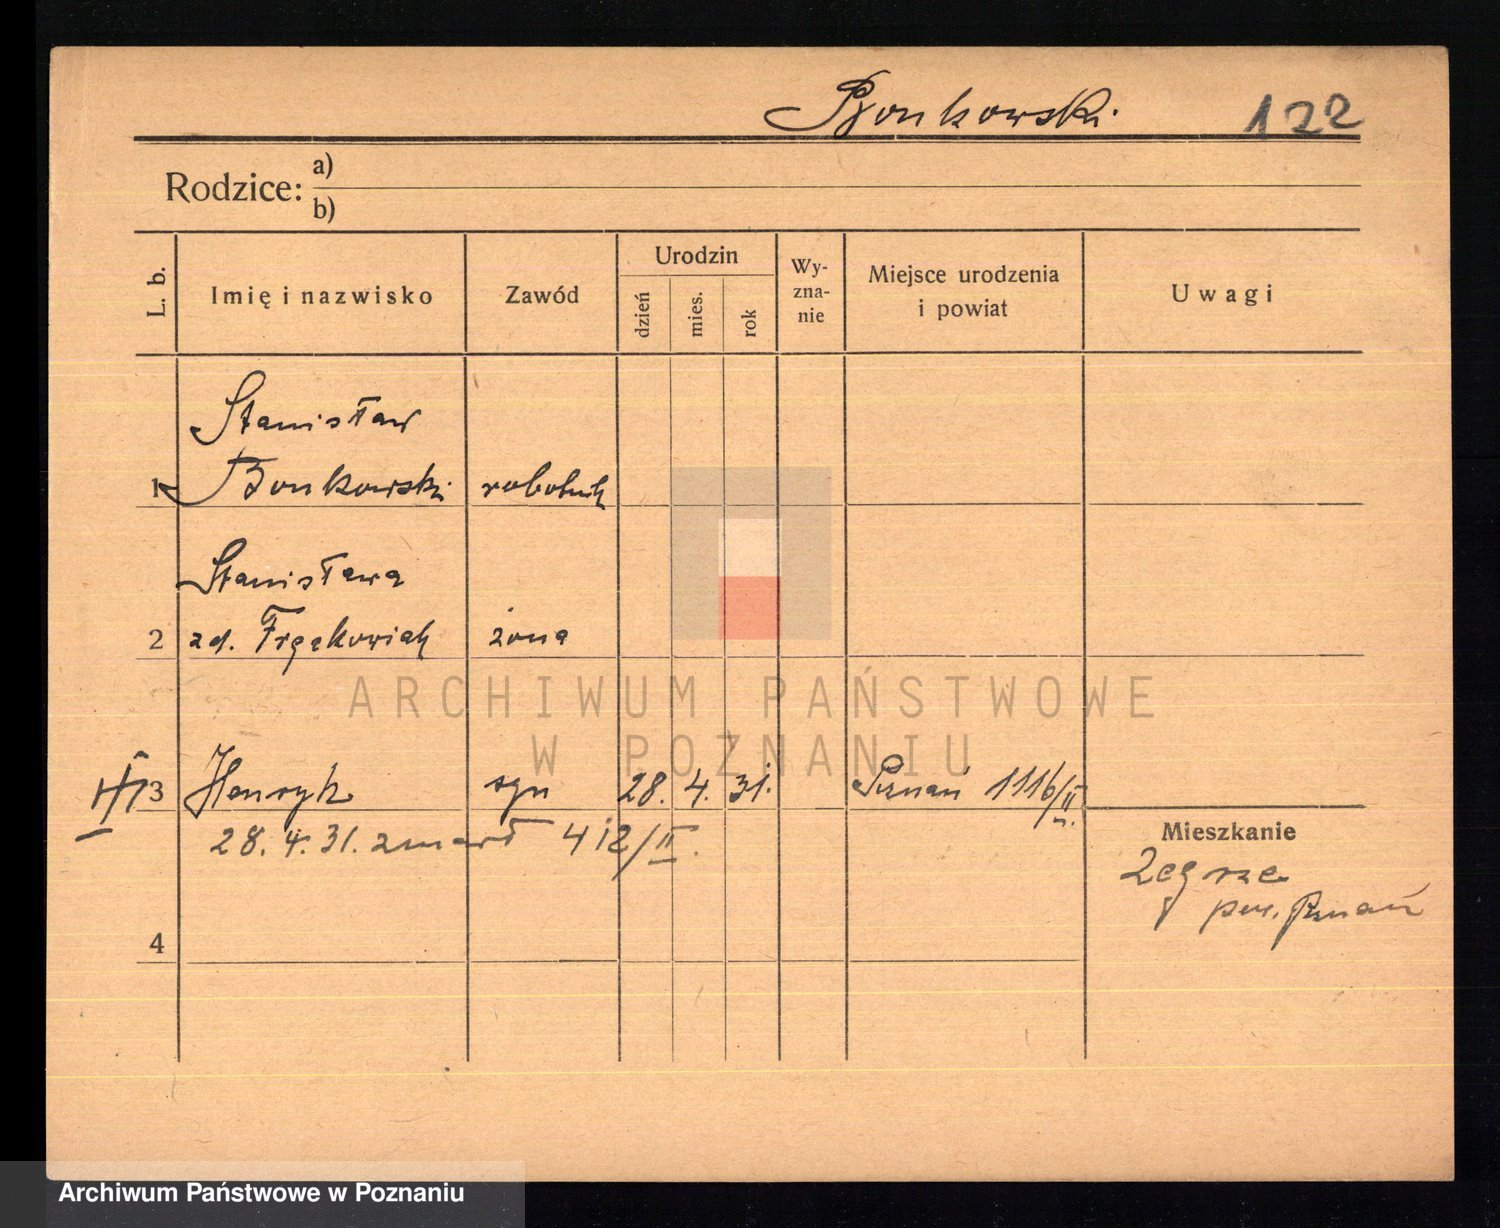 Bonkowski 122
Rodzice:
a)
b)
L. b.
Imię i nazwisko
Zawód
Urodzin
dzień
mies.
rok
Wy-
zna-
nie
Miejsce urodzenia
i powiat
Uwagi
Stanisław
1 Bonkowski robotnik
Stanisława
2 zd. Frąckowiak żona
3 Henryk syn 28. 4. 31. Poznań 1116/II.
28. 4. 31. zmarł 412/II.
Mieszkanie
Żegrze
pow. Poznań
4
ARCHIWUM PAŃSTWOWE
W POZNANIU
Archiwum Państwowe w Poznaniu